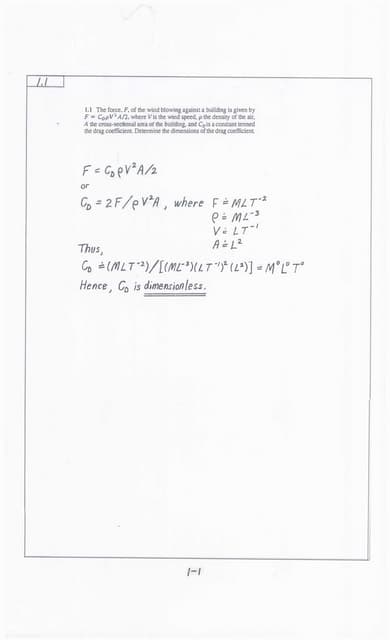 1.1
1.1 The force, F, of the wind blowing against a building is given by
F = C_D ρV²A/2, where V is the wind speed, ρ the density of the air,
A the cross-sectional area of the building, and C_D is a constant termed
the drag coefficient. Determine the dimensions of the drag coefficient.
F = C_D ρV²A/2
or
C_D = 2F/ρV²A, where F ≐ MLT⁻²
ρ ≐ ML⁻³
V ≐ LT⁻¹
A ≐ L²
Thus,
C_D ≐ (MLT⁻²)/[(ML⁻³)(LT⁻¹)²(L²)] = M⁰L⁰T⁰
Hence, C_D is dimensionless.
1-1